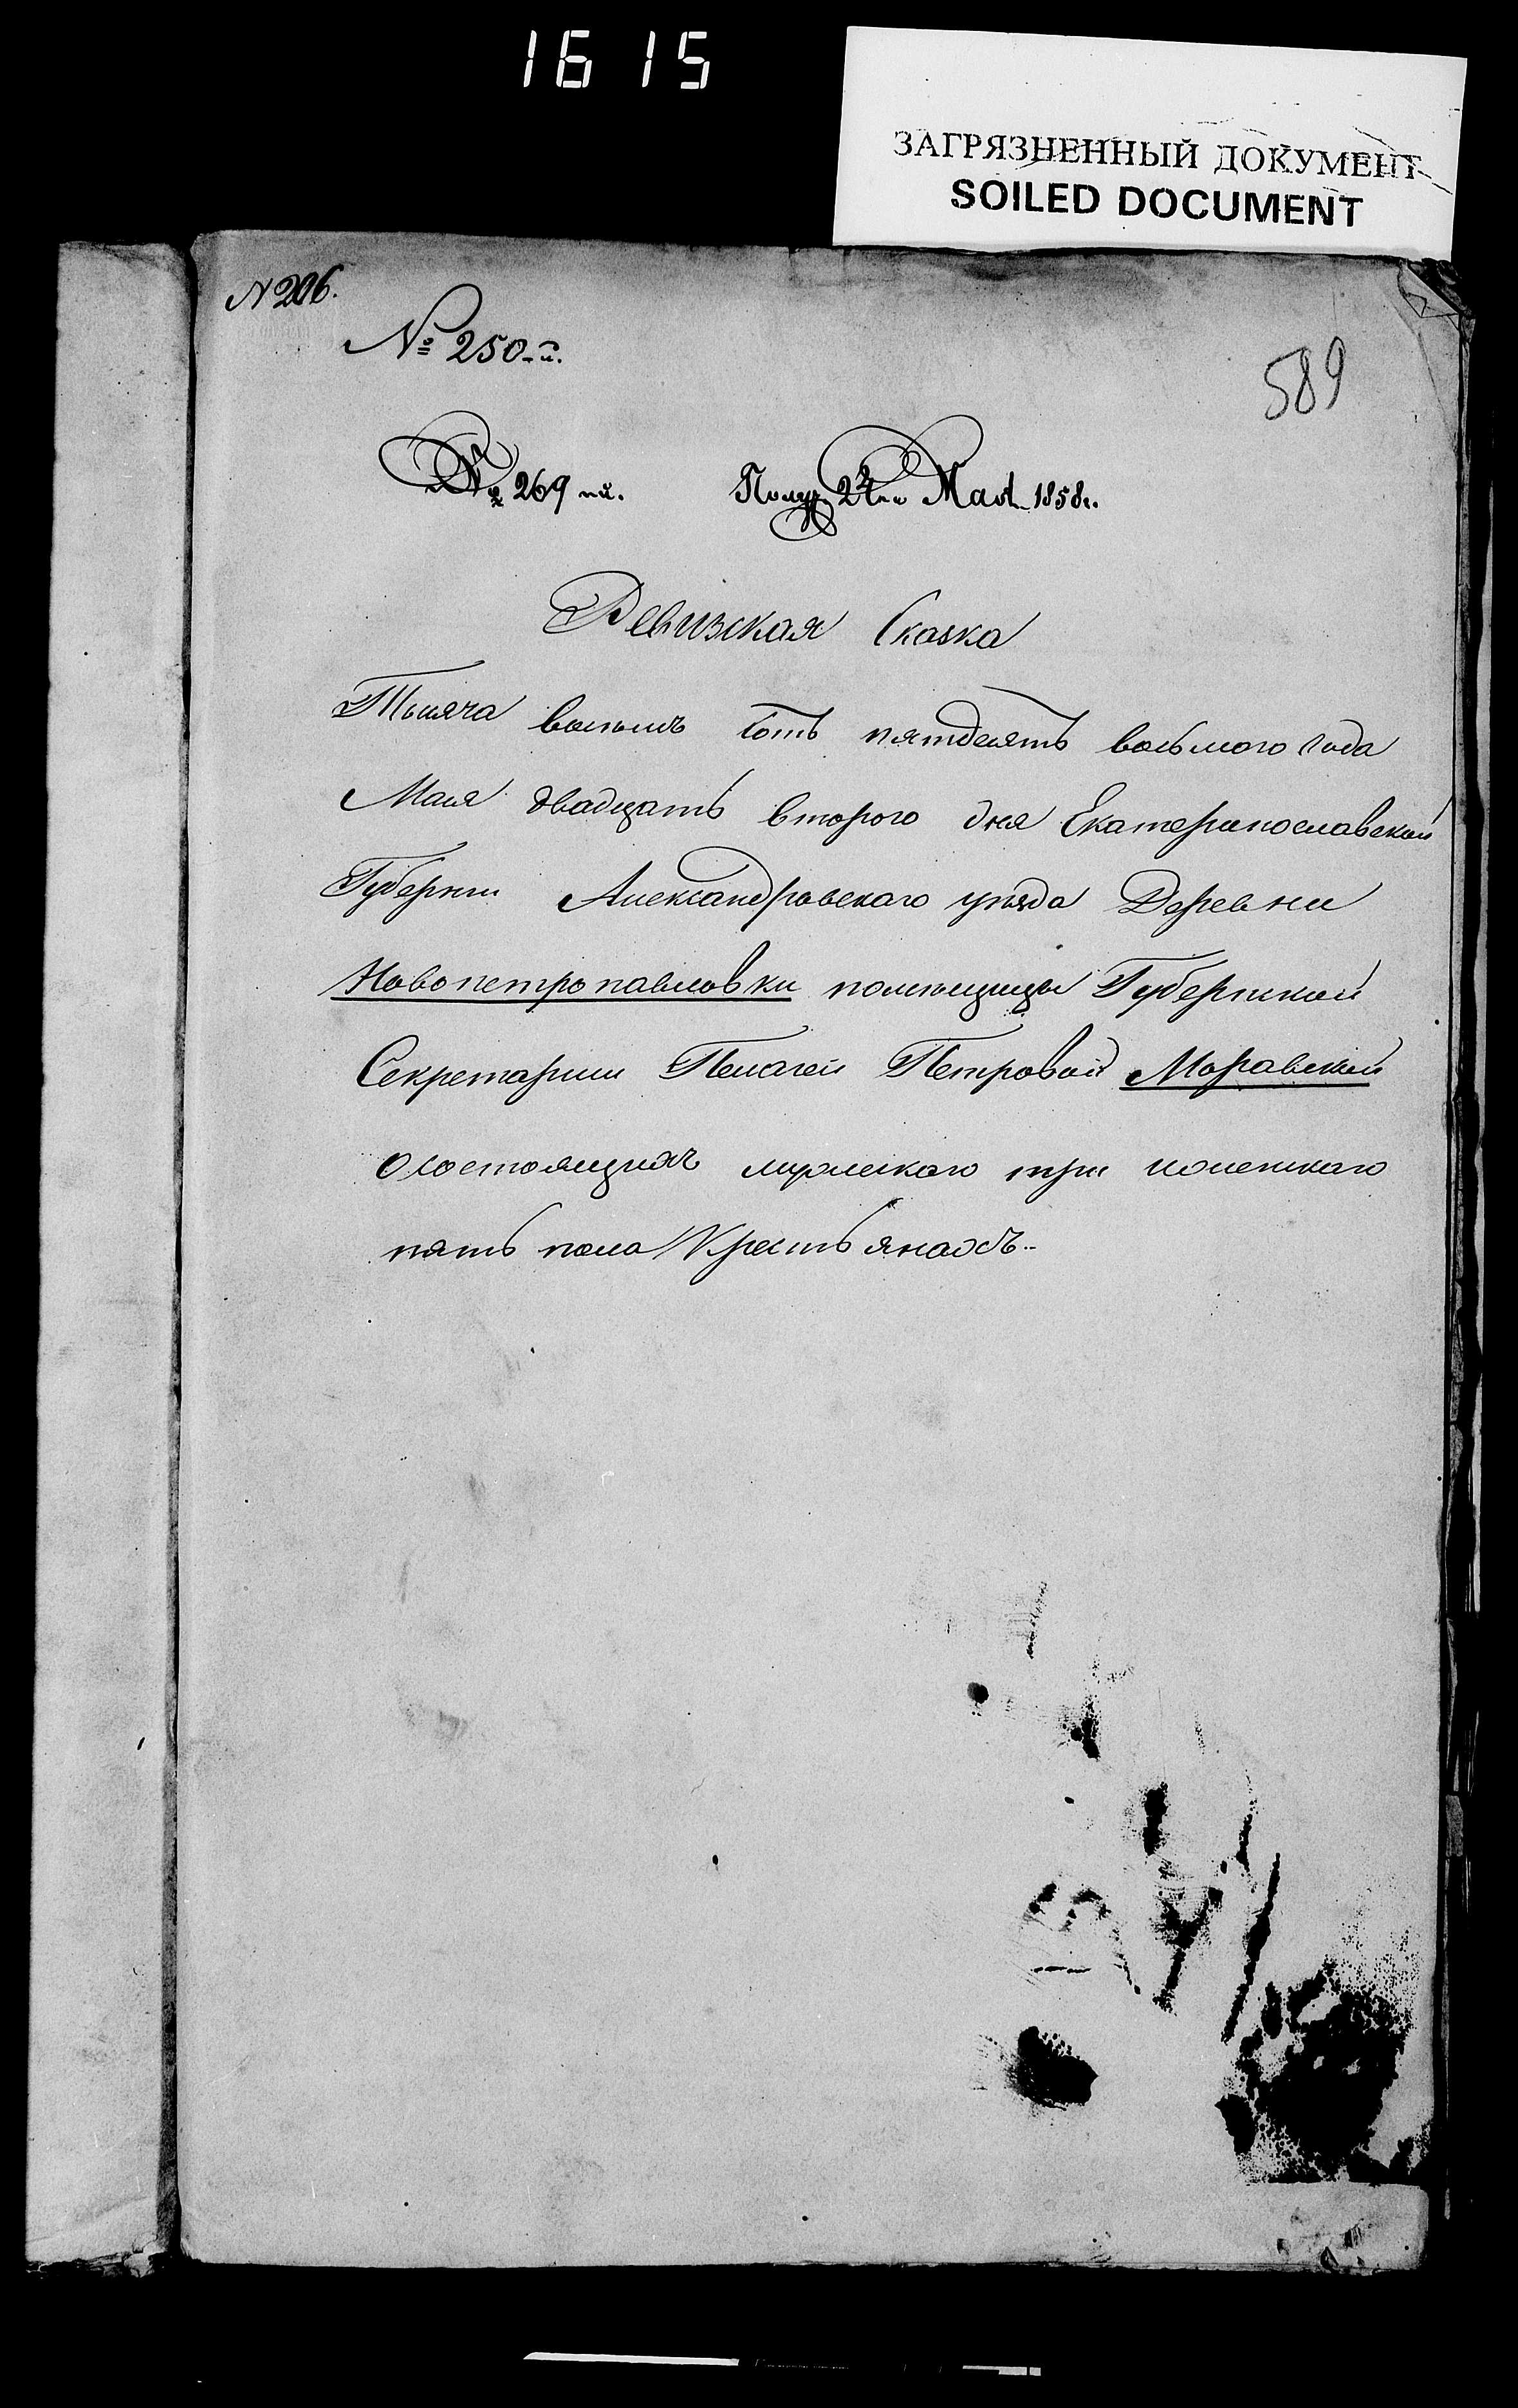 1615
ЗАГРЯЗНЕННЫЙ ДОКУМЕНТ
SOILED DOCUMENT
N 206.
№ 250-й.
589
№ 269 -й. Получ. Мая 1858 г.
Ревизская Сказка
Тысяча восемь сотъ пятдесятъ восьмого года
Мая двадцать второго дня Екатеринославской
Губернии Александровскаго уѣзда Деревни
Новопетропавловки помѣщицы Губернской
Секретарши Пелагеи Петровой Моравской
о состоящихъ мужескаго три женскаго
пять пола Крестьянахъ.